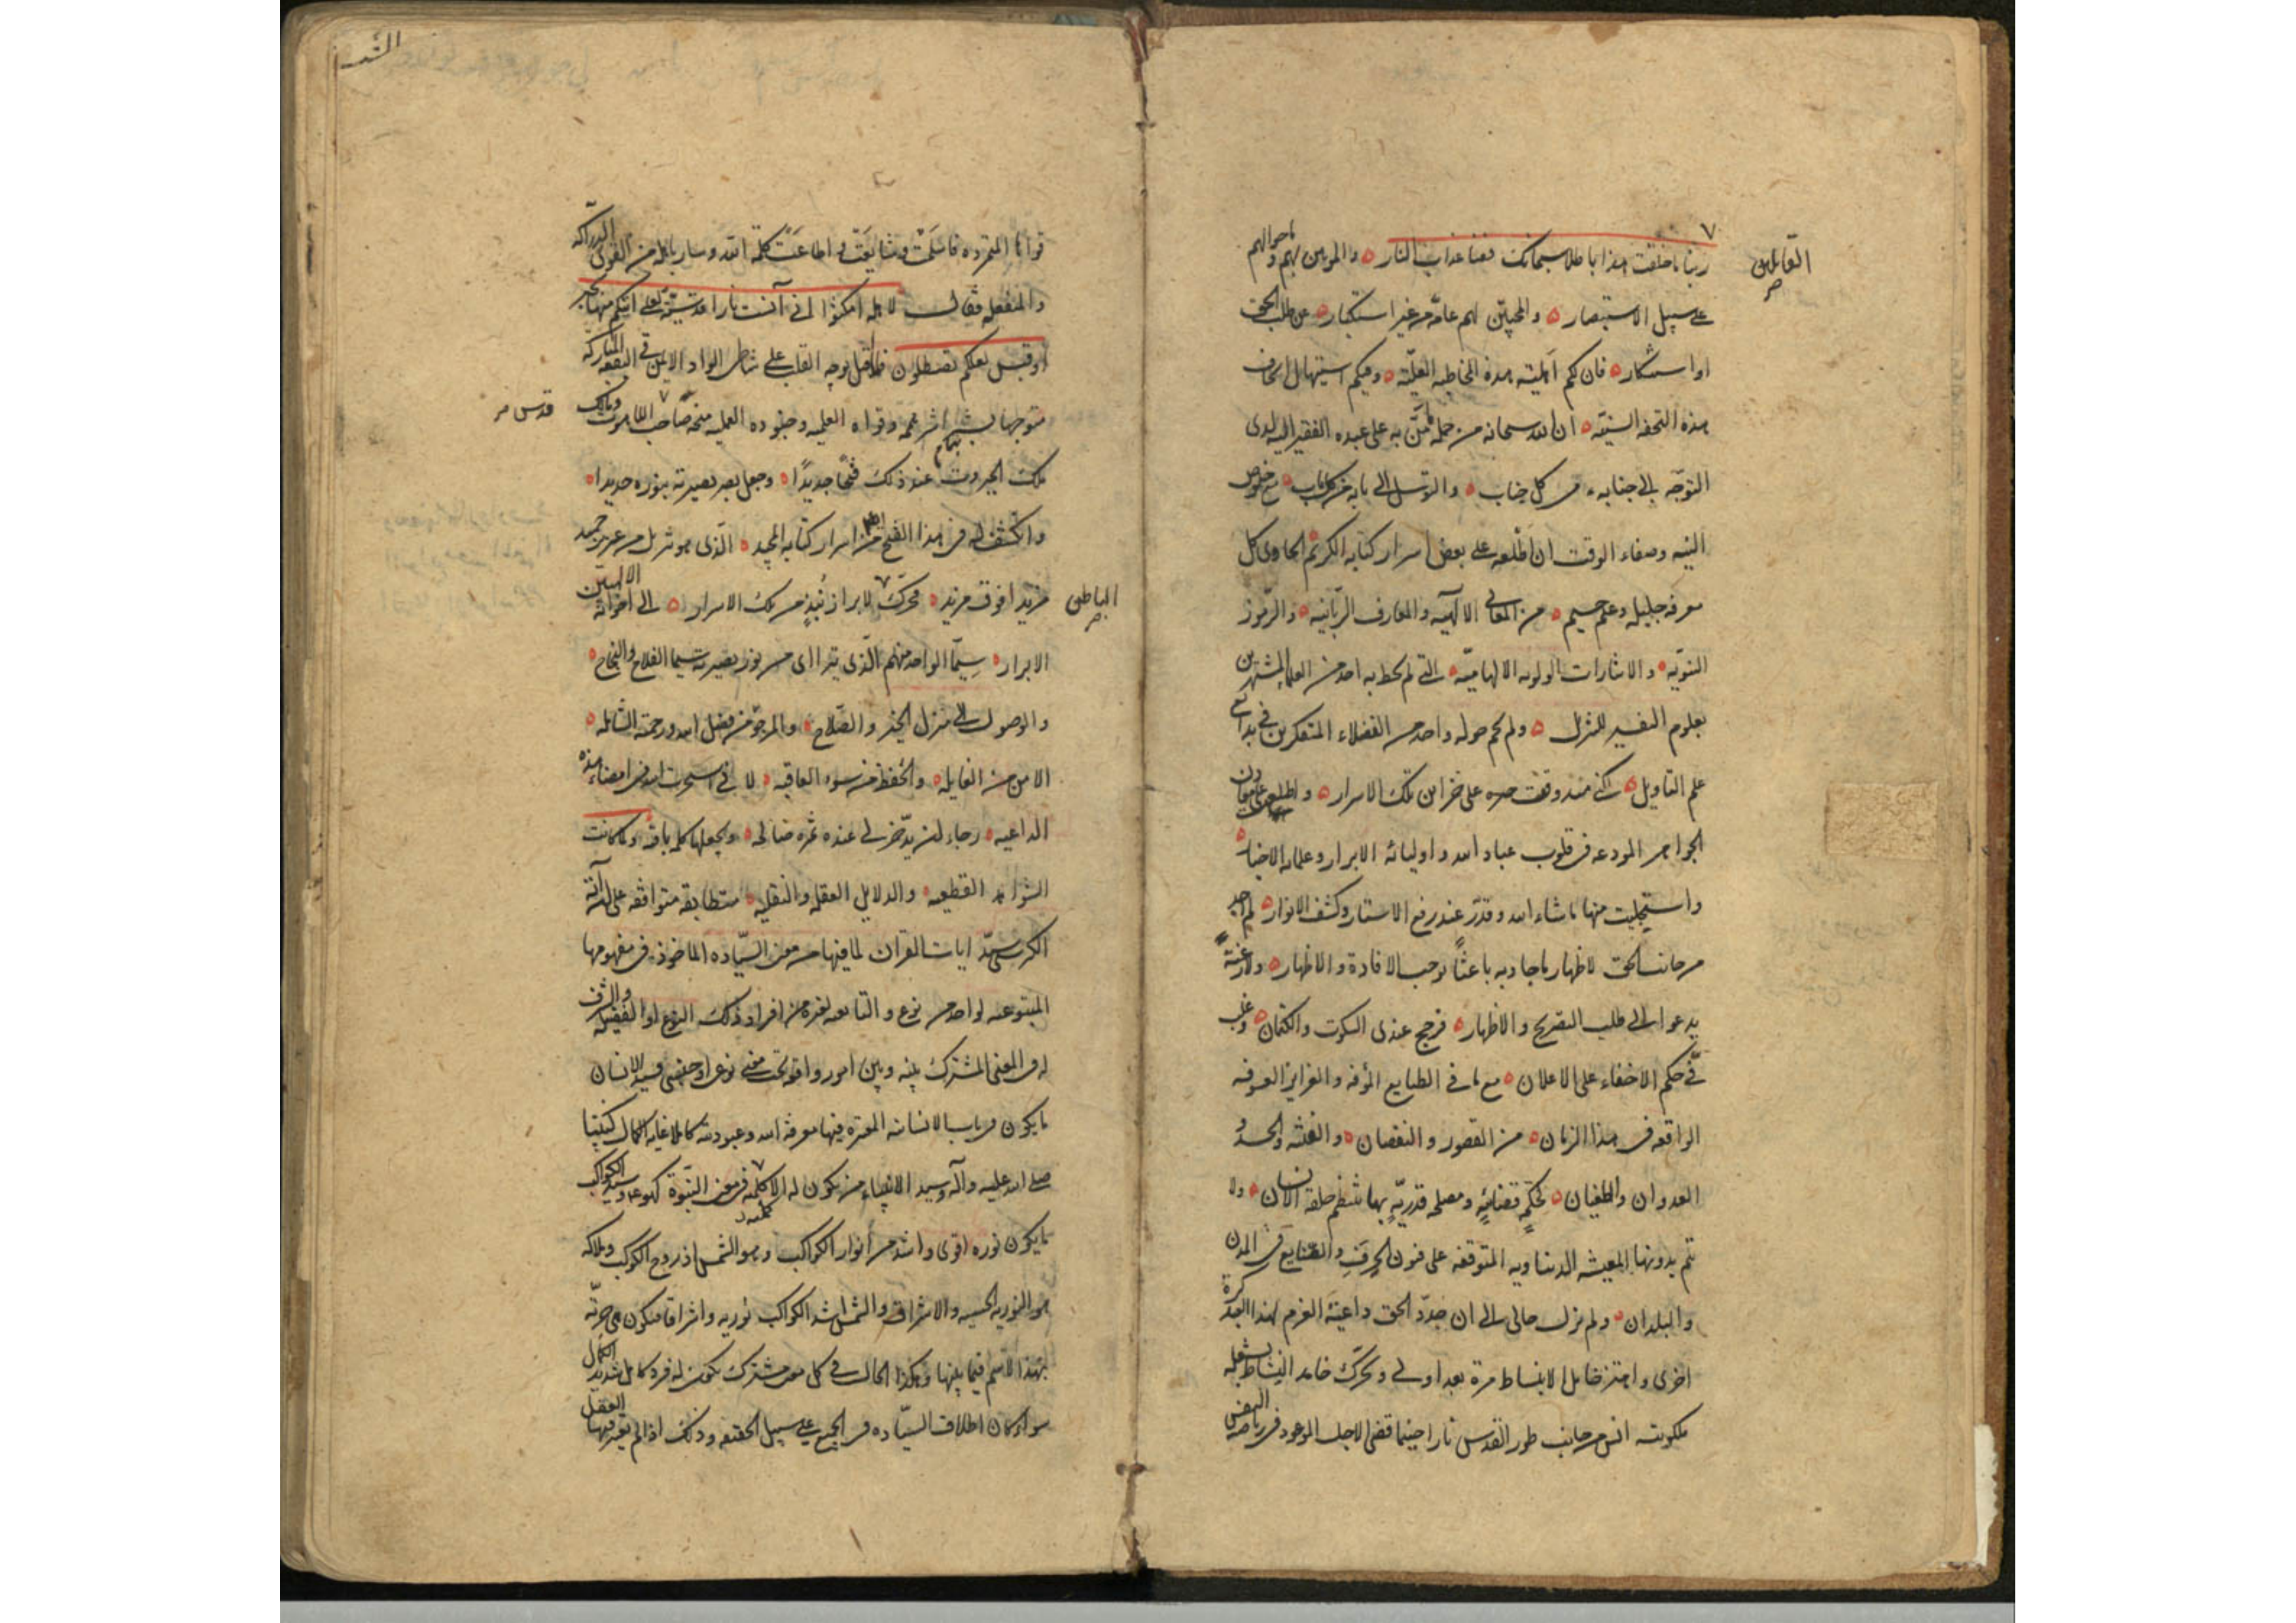 القائلين
ربنا ما خلقت هذا باطلا سبحانك فقنا عذاب النار والموهبين لهم واحوالهم
على سبيل الاستبصار والمحبين لهم عامة من غير استكبار عن طلب الحق
او استنكار فان لكم اهلية هذه المخاطبة العلية وفيكم استيهال اتحاف
هذه التحفة السنية ان الله سبحانه من جملة ما من به على عبده الفقير اليه لدى
التوجه الى جنابه من كل جناب والتوسل الى بابه من كل باب مع خلوص
النية وصفاء الوقت ان اطلعه على بعض اسرار كتابه الكريم الحاوى كل
معرفة جليلة وعلم جسيم من المعانى الالهية والمعارف الربانية والرموز
النبوية والاشارات الولوية الالهامية التى لم يحط به احد من العلماء المشتهرين
بعلوم التفسير للتنزيل ولم يحم حوله واحد من الفضلاء المتفكرين فى بدائع
علم التأويل لكنى منذ وقفت على خزاين تلك الاسرار واطلعت على معادن
الجواهر المودعة فى قلوب عباد الله واوليائه الابرار وعلمائه الاخيار
واستجليت منها ما شاء الله وقدر عند رفع الاستار وكشف الانوار لم اجد
من جانب الحق لاظهار ما جاد به باعثا يوجب الافادة والاظهار ولا رغبة
يدعو الى طلب التصريح والاظهار فرجح عندى السكوت والكتمان وغلب
فى حكم الاخفاء على الاعلان مع ما فى الطبايع المؤفة والغرايز المعوفة
الواقعة فى هذا الزمان من القصور والنقصان والفتنة والحسد و
العدوان والطغيان لحكم قضائية ومصلحة قدرية بها ينتظم خلقة الانسان ولا
تتم بدونها المعيشة الدنياوية المتوقفة على فنون الحرف والصنايع فى المدن
والبلدان ولم يزل حالى الى ان جدد الحق داعية العزم لهذا العبد كرة
اخرى واهتز خامل الانبساط مرة بعد اولى وتحرك خامد النشاط بشعلة
ملكوتية انس من جانب طور القدس نارا حينما قضى الاجل الموعود فى رياضة النفس
قواها المتمردة فاسلمت وشايعت واطاعت كلمة الله وسار باهله من القوى الدراكة
والمنفعلة فقال لاهله امكثوا انى آنست نارا لعلى آتيكم منها بخبر
او قبس لعلكم تصطلون فلما قبل بوجه القلب على شاطئ الواد الايمن فى البقعة المباركة
متوجها بشراشر همه وقواه العلمية وجنوده العملية منحه صاحب اللاهوت ومالك
قدس سره
ملك الجبروت عند ذلك فتحا جديدا وجعل بصر بصيرته بنوره حديدا
وانكشف له فى هذا الفتح من اسرار كتابه المجيد الذى هو تنزيل من عزيز حميد
مزيدا فوق مزيد فحرك لابراز نبذ من تلك الاسرار الى اخوانه الالهيين
الابرار سيما الواحد منهم الذى يتراءى من نور بصيرته سيما الفلاح والنجاح
والوصول الى منزل الخير والصلاح والمرجو من فضل الله ورحمته الشاملة
الامن من الغايلة والحفظ من سوء العاقبة لانى استخرت الله فى امضاء هذه
الداعية رجاء لان يدخر لى عنده ثمرة صالحة ويجعلها كلمة باقية ولما كانت
الشواهد القطعية والدلايل العقلية والنقلية متطابقة متوافقة على ان آية
الكرسى سيد ايات القرآن لما فيها من معنى السيادة الماخوذ فى مفهومها
المتبوعية لواحد من نوع والتابعية لغيره من افراد ذلك النوع او الفضيلة والشرف
له فى المعنى المشترك بينه وبين امور واقعة تحت معنى نوعى او جنسى فسيد الانسان
ما يكون فى باب الانسانية المعتبرة فيها معرفة الله وعبوديته كاملا غاية الكمال كنبينا
صلى الله عليه وآله وسيد الانبياء من يكون له الاكملية فى معنى النبوة كهو وسيد الكواكب
ما يكون نوره اقوى واشد من انوار الكواكب وهو الشمس اذ روح الكوكب وملاكه
هو النورية الحسية والاشراق والشمس اشد الكواكب نورية واشراقا فيكون هى حرية
بهذا الاسم فيما بينها وهكذا الحال فى كل معنى مشترك يكون له فرد كامل شديد الكمال
سواء كان اطلاق السيادة فى الجميع على سبيل الحقيقة وذلك اذا لم يعتبر فيها العقل